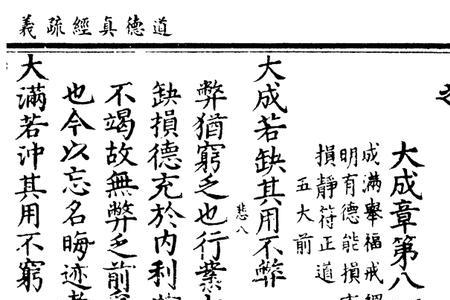 道德真經疏義
大成章第八
成滿舉福戒
明有德能損
損靜符正道
五大前
大成若缺其用不弊
悲八
弊猶窮乏也行業
缺損德充於內利
不竭故無弊乏前
也今以忘名晦迹
大滿若沖其用不窮